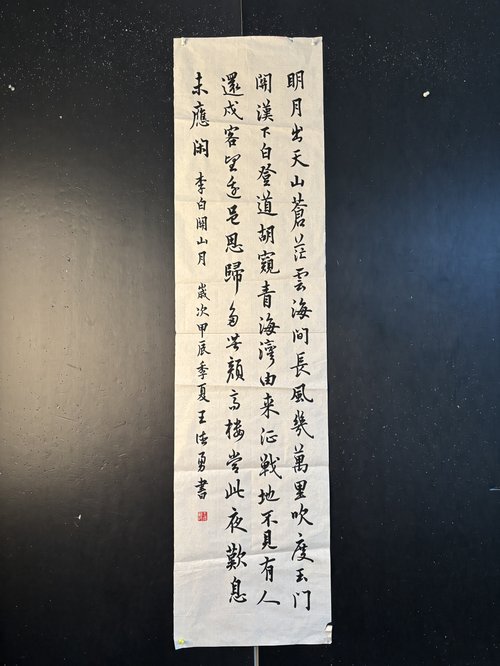 明月出天山蒼茫雲海間長風幾萬里吹度玉门
關漢下白登道胡窺青海灣由来征戰地不見有人
還戍客望邊邑思歸多苦顏高樓當此夜歎息
未應閑 李白關山月 歲次甲辰季夏王勇書